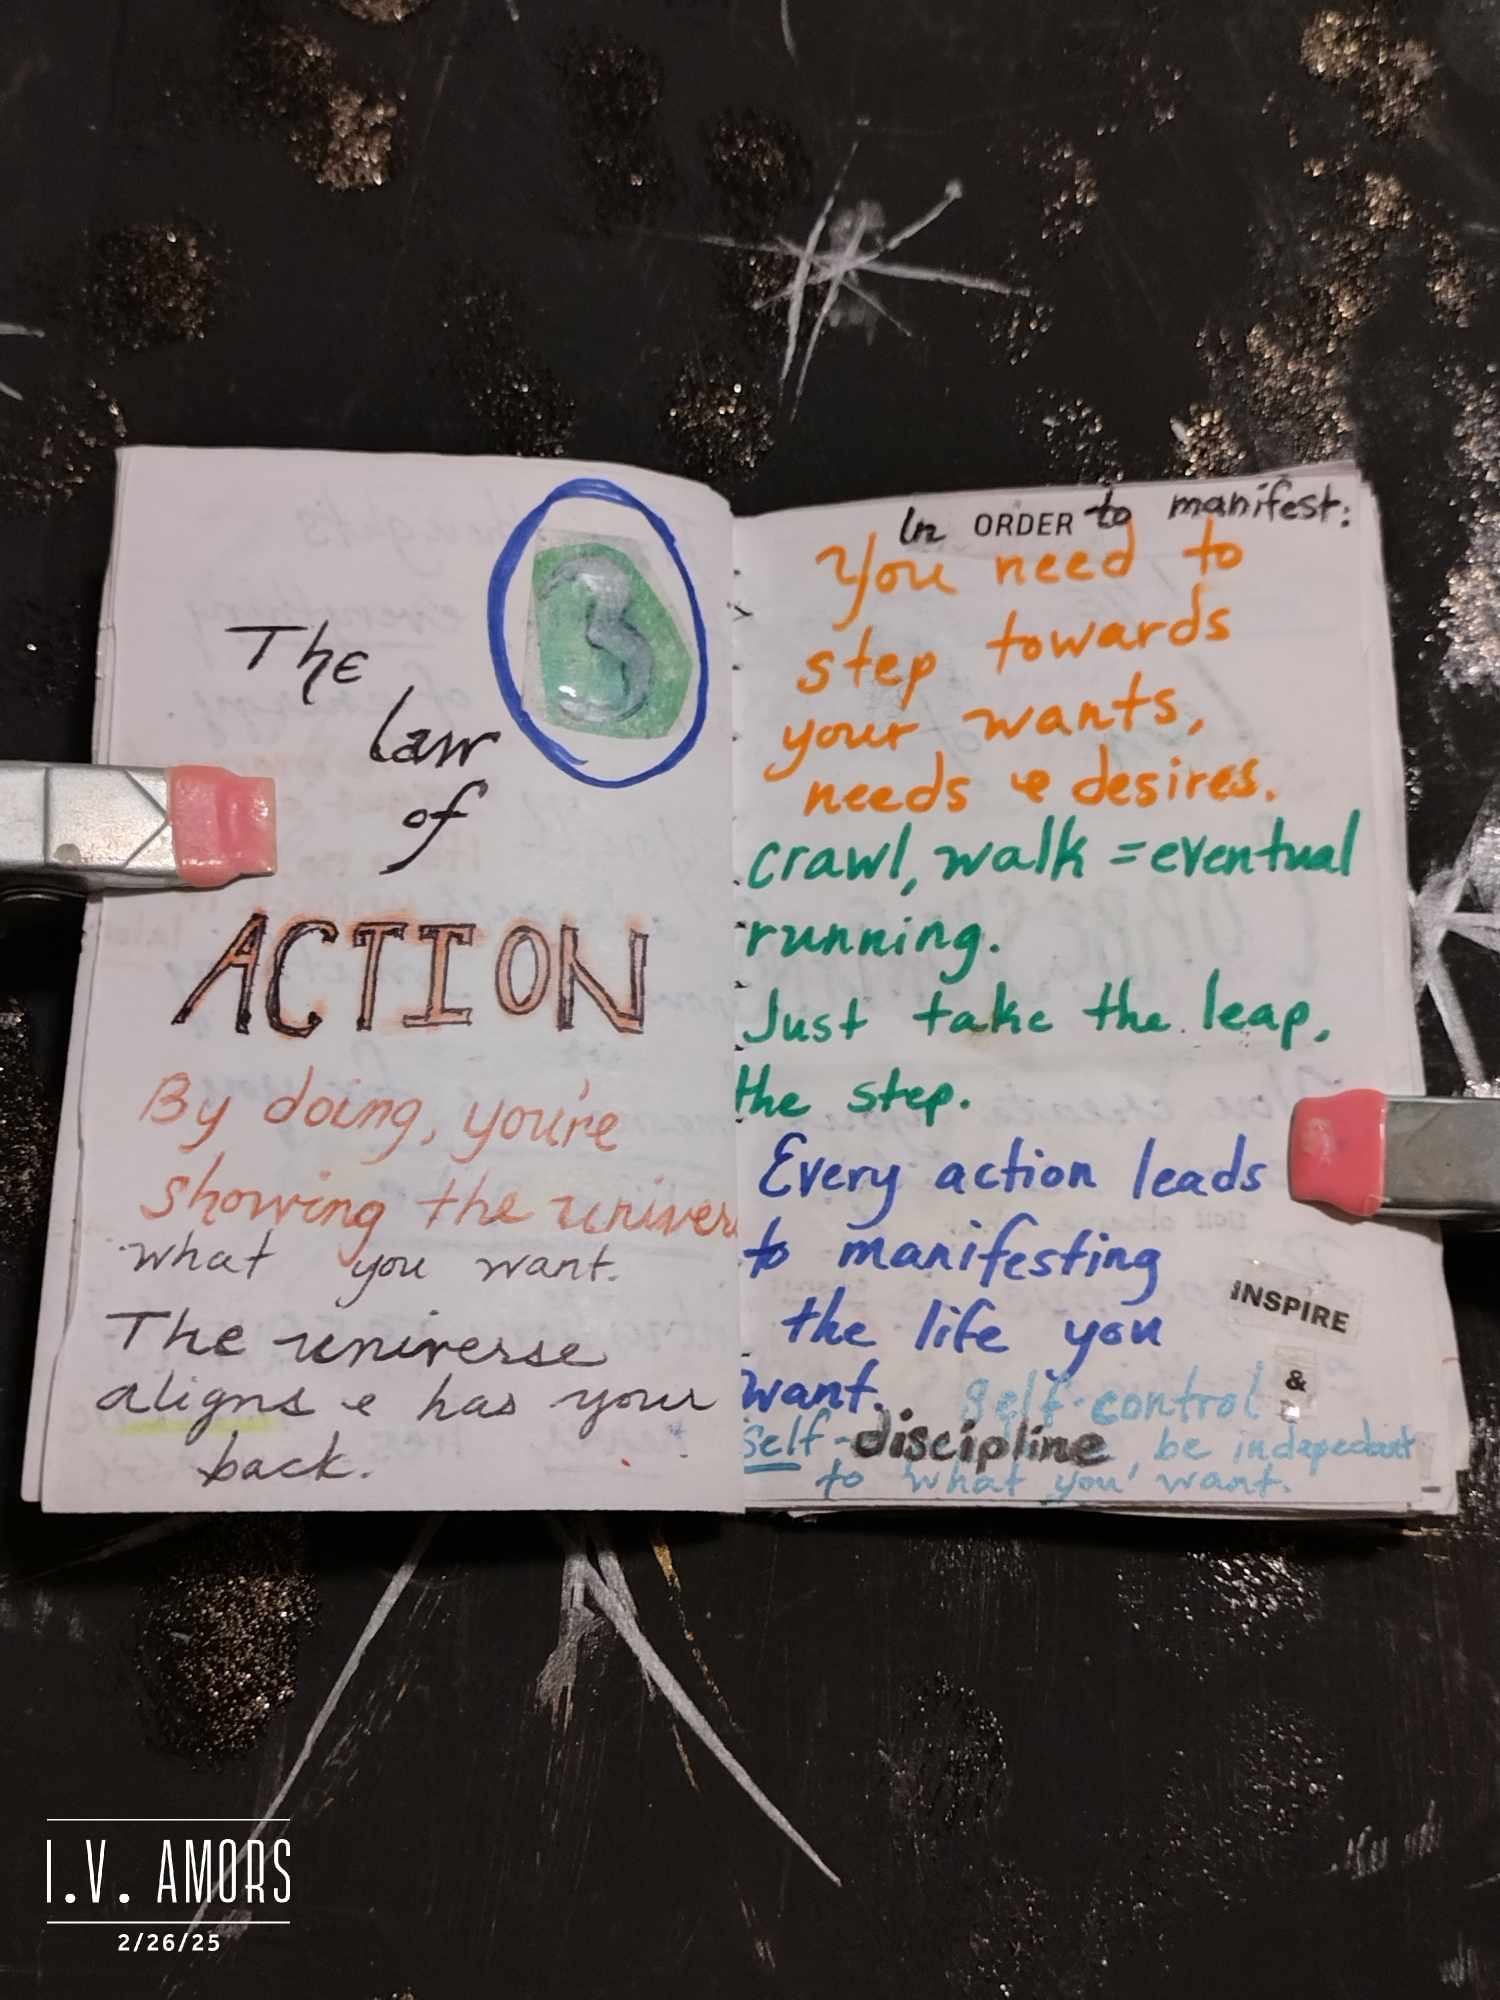 3
The
law
of
ACTION
By doing, you're
showing the univers
what you want.
The universe
aligns & has your
back.
In ORDER to manifest:
You need to
step towards
your wants,
needs & desires.
crawl, walk = eventual
running.
Just take the leap,
the step.
Every action leads
to manifesting
the life you
want.
INSPIRE
&
self-control
self-discipline, be indepedant
to what you want.
I.V. AMORS
2/26/25